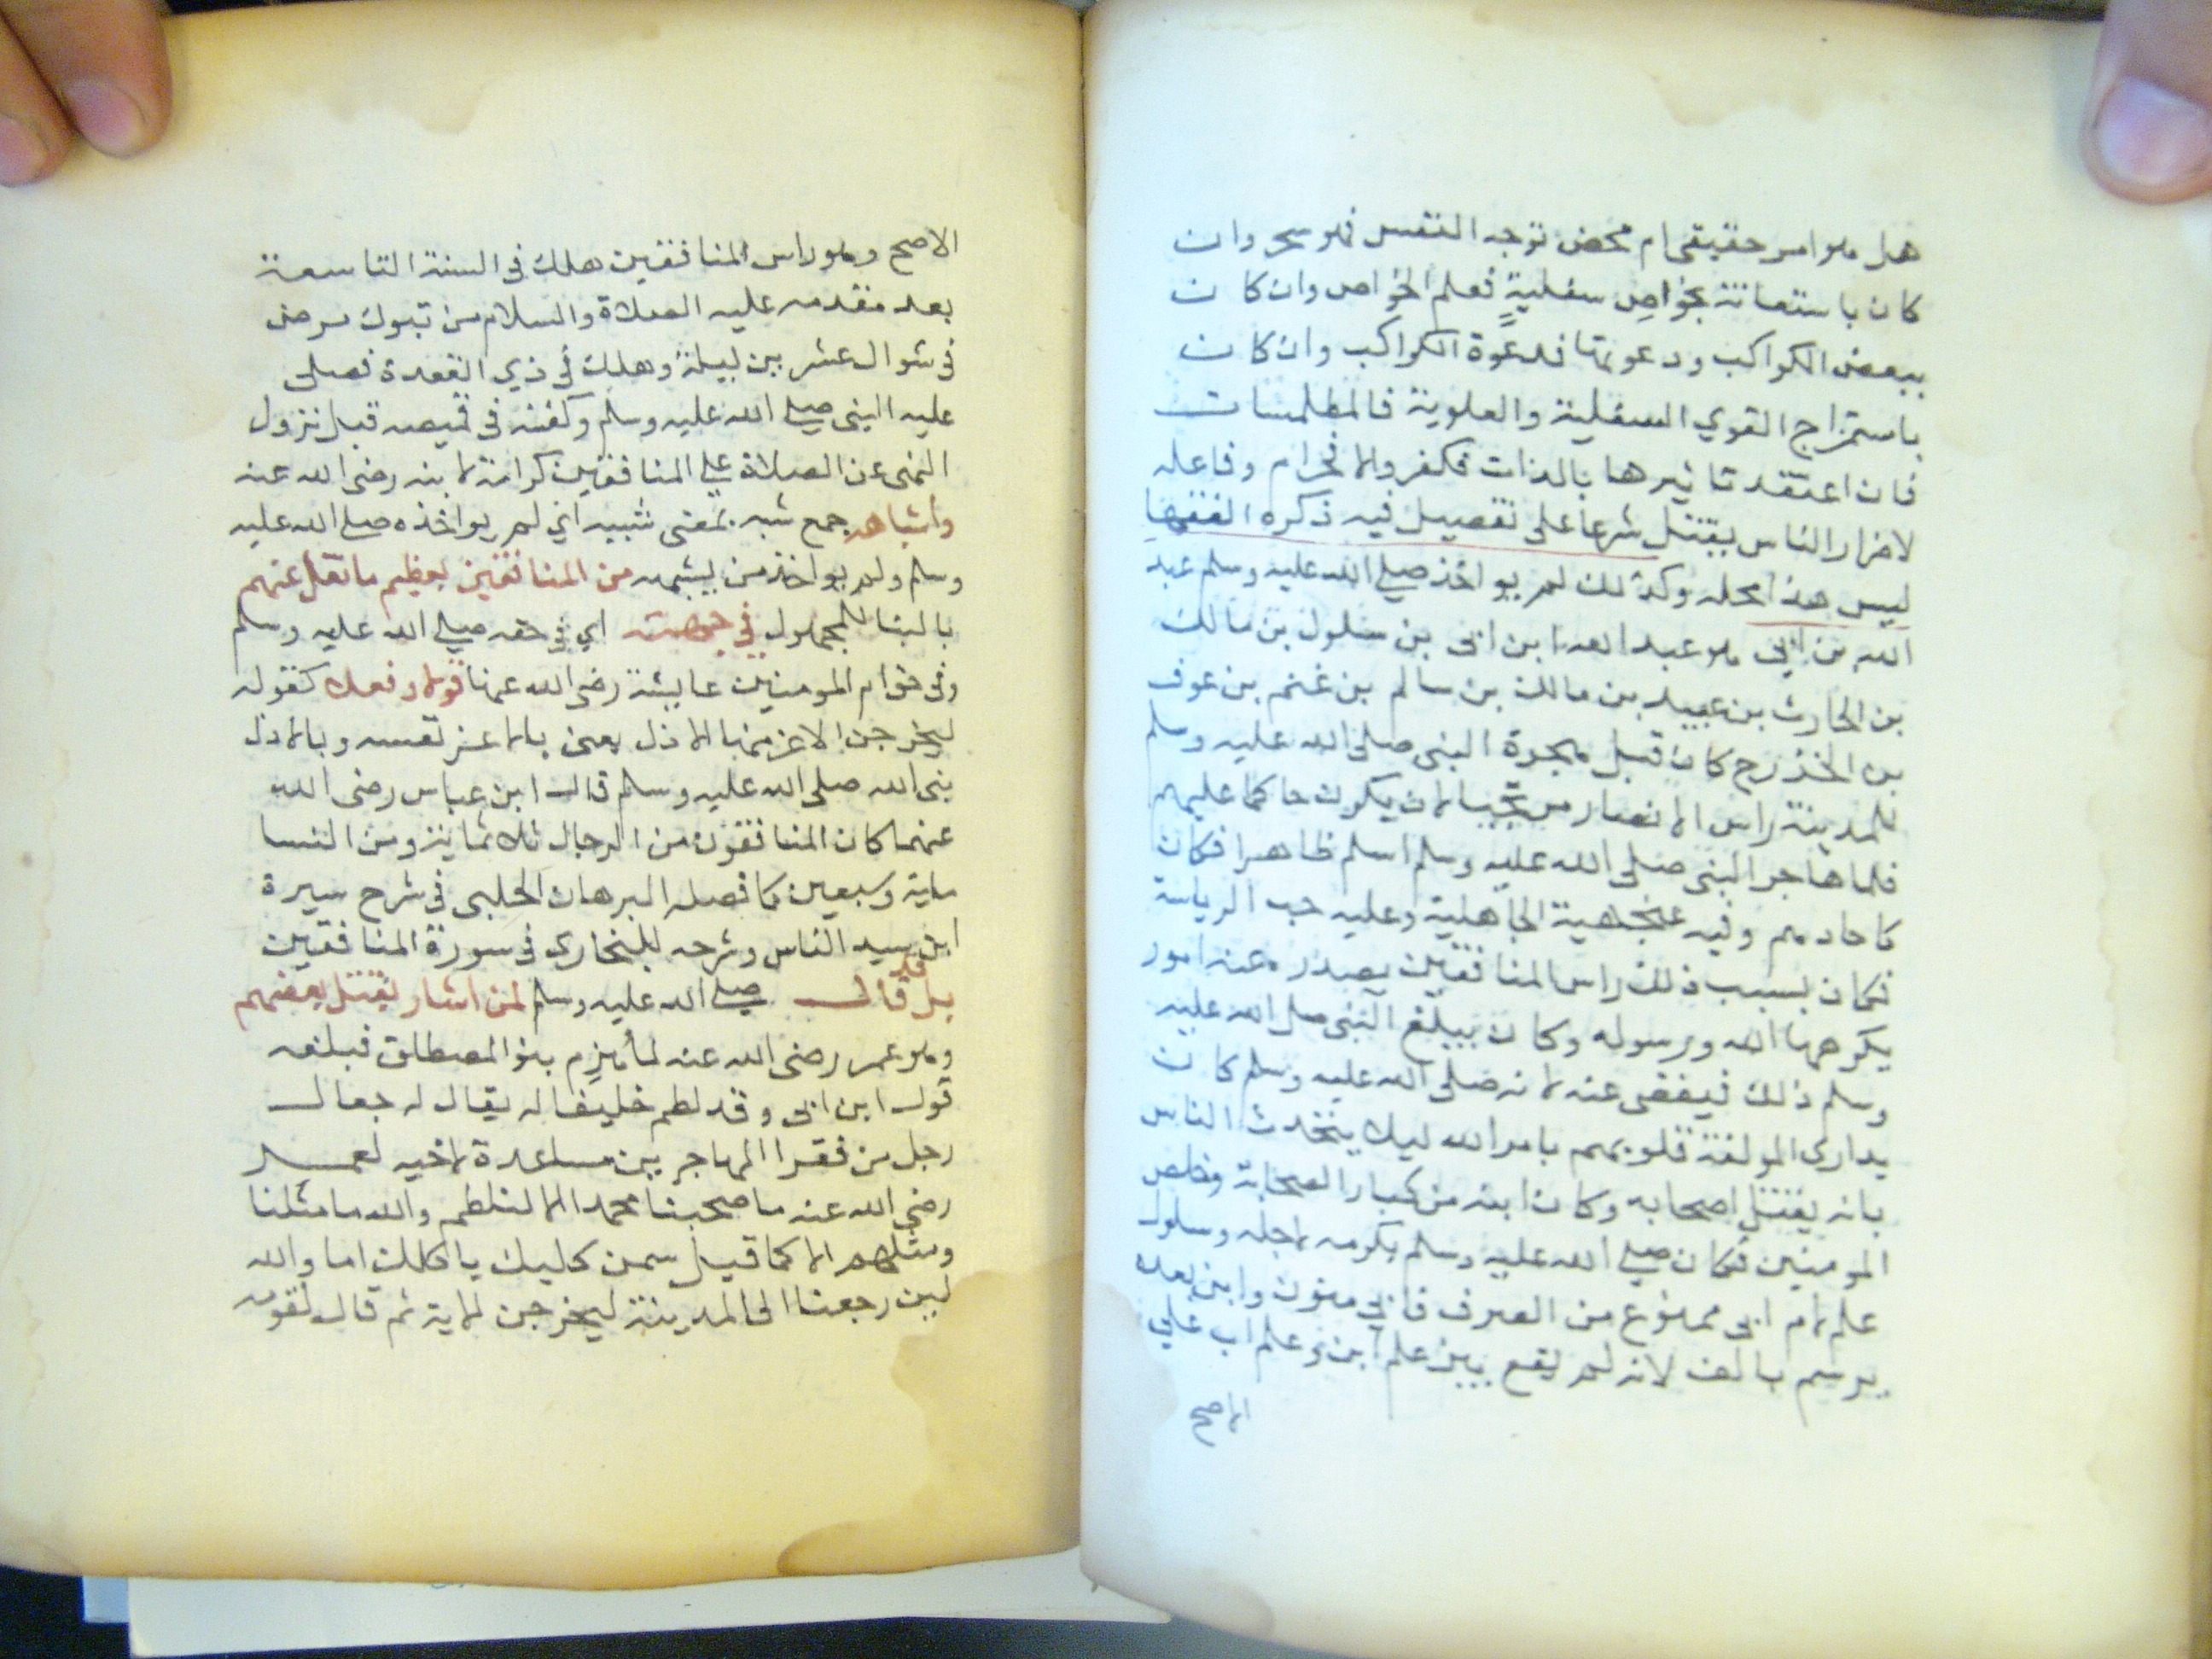 هل هو امر حقيقي ام محض توجه النفس فهو سحر وان
كان باستعانة بخواص سفلية فعلم الخواص وان كان
ببعض الكواكب ودعوتها فدعوة الكواكب وان كان
باستمزاج القوي السفلية والعلوية فالطلسمات
فان اعتقد تاثيرها بالذات فكفر والا فحرام وفاعله
لاضرار الناس يقتل شرعا على تفصيل فيه ذكره الفقها
ليس هذا محله وكذلك لم يواخذ صلى الله عليه وسلم عبد
الله بن ابي هو عبد الله ابن ابى بن سلول بن مالك
بن الحارث بن عبيد بن مالك بن سالم بن غنم بن عوف
بن الخزرج كان قبل هجرة النبى صلى الله عليه وسلم
للمدينة راس الانصار لان يكون حاكما عليهم
فلما هاجر النبى صلى الله عليه وسلم اسلم ظاهرا فكان
كاحادهم وفيه عنجهية الجاهلية وعليه حب الرياسة
فكان بسبب ذلك راس المنافقين يصدر عنه امور
يكرهها الله ورسوله وكان يبلغ النبى صلى الله عليه
وسلم ذلك فيغضى عنه لانه صلى الله عليه وسلم كان
يدارى المولفة قلوبهم بامر الله ليلا يتحدث الناس
بانه يقتل اصحابه وكان ابنه من كبار الصحابة وخلص
المومنين فكان صلى الله عليه وسلم يكرمه لاجله وسلول
علم لام ابى ممنوع من الصرف فابي منون وابن بعده
يرسم بالف لانه لم يقع بين علم ابن وعلم اب علي
الاصح
الاصح وهو راس المنافقين هلك فى السنة التاسعة
بعد مقدمه عليه الصلاة والسلام من تبوك مرض
فى شوال عشرين ليلة وهلك في ذي القعدة فصلى
عليه النبى صلى الله عليه وسلم وكفنه فى قميصه قبل نزول
النهى عن الصلاة على المنافقين كرامة لابنه رضى الله عنه
وأشباهه جمع شبه بمعنى شبيه اي لم يواخذه صلى الله عليه
وسلم ولم يواخذ من يشبهه من المنافقين بعظيم ما نقل عنهم
بالبنا للمجهول في جهته اي في حقه صلى الله عليه وسلم
وفى حق ام المومنين عايشة رضى الله عنها قولا وفعلا كقوله
ليخرجن الاعز منها الاذل يعنى بالاعز نفسه وبالاذل
نبى الله صلى الله عليه وسلم قال ابن عباس رضى الله
عنهما كان المنافقون من الرجال ثلاثماية ومن النسا
ماية وسبعين كما فصله البرهان الحلبى فى شرح سيرة
ابن سيد الناس وشرحه للبخاري فى سورة المنافقين
بل قد قال صلى الله عليه وسلم لمن اشار بقتل بعضهم
وهو عمر رضى الله عنه لما هزم بنو المصطلق فبلغه
قول ابن ابى وقد لطم حليفا له يقال له جعال
رجل من فقرا المهاجرين مساعدة لاجير لعمر
رضي الله عنه ما صحبنا محمدا الا لنلطم والله ما مثلنا
ومثلهم الا كما قيل سمن كلبك ياكلك اما والله
لين رجعنا الى المدينة ليخرجن الاية ثم قال لقومه